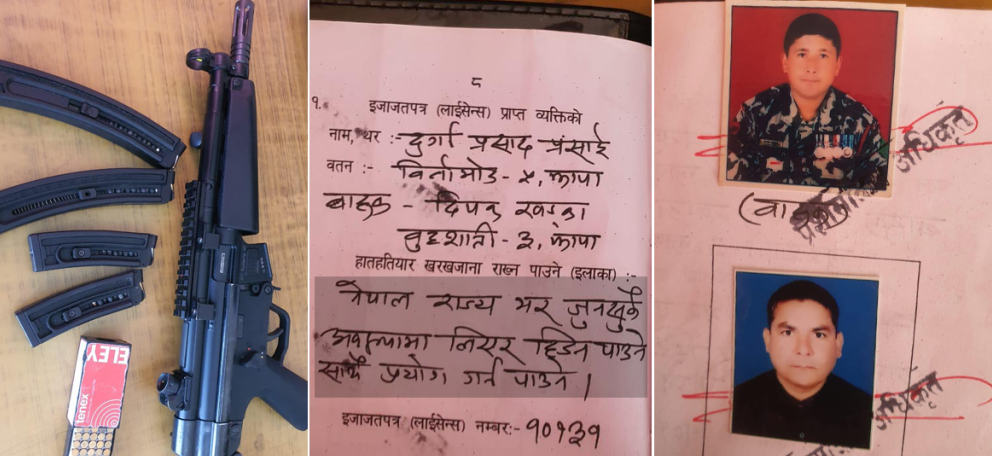 ELEY
tenex
८
१. इजाजतपत्र (लाईसेन्स) प्राप्त व्यक्तिको
नाम, थर :- दुर्गा प्रसाद प्रसाईं
वतन :- विर्तामोड - ५, झापा
बाहक - दिपक खड्का
बुद्धशान्ती - ३, झापा
हातहतियार खरखजाना राख्न पाउने (इलाका) :-
नेपाल राज्य भर जुनसुकै
अवस्थामा लिएर हिडन पाउने
साथै प्रयोग गर्न पाउने ।
इजाजतपत्र (लाईसेन्स) नम्बर:- १०१३१
अधिकृत
अधिकृत